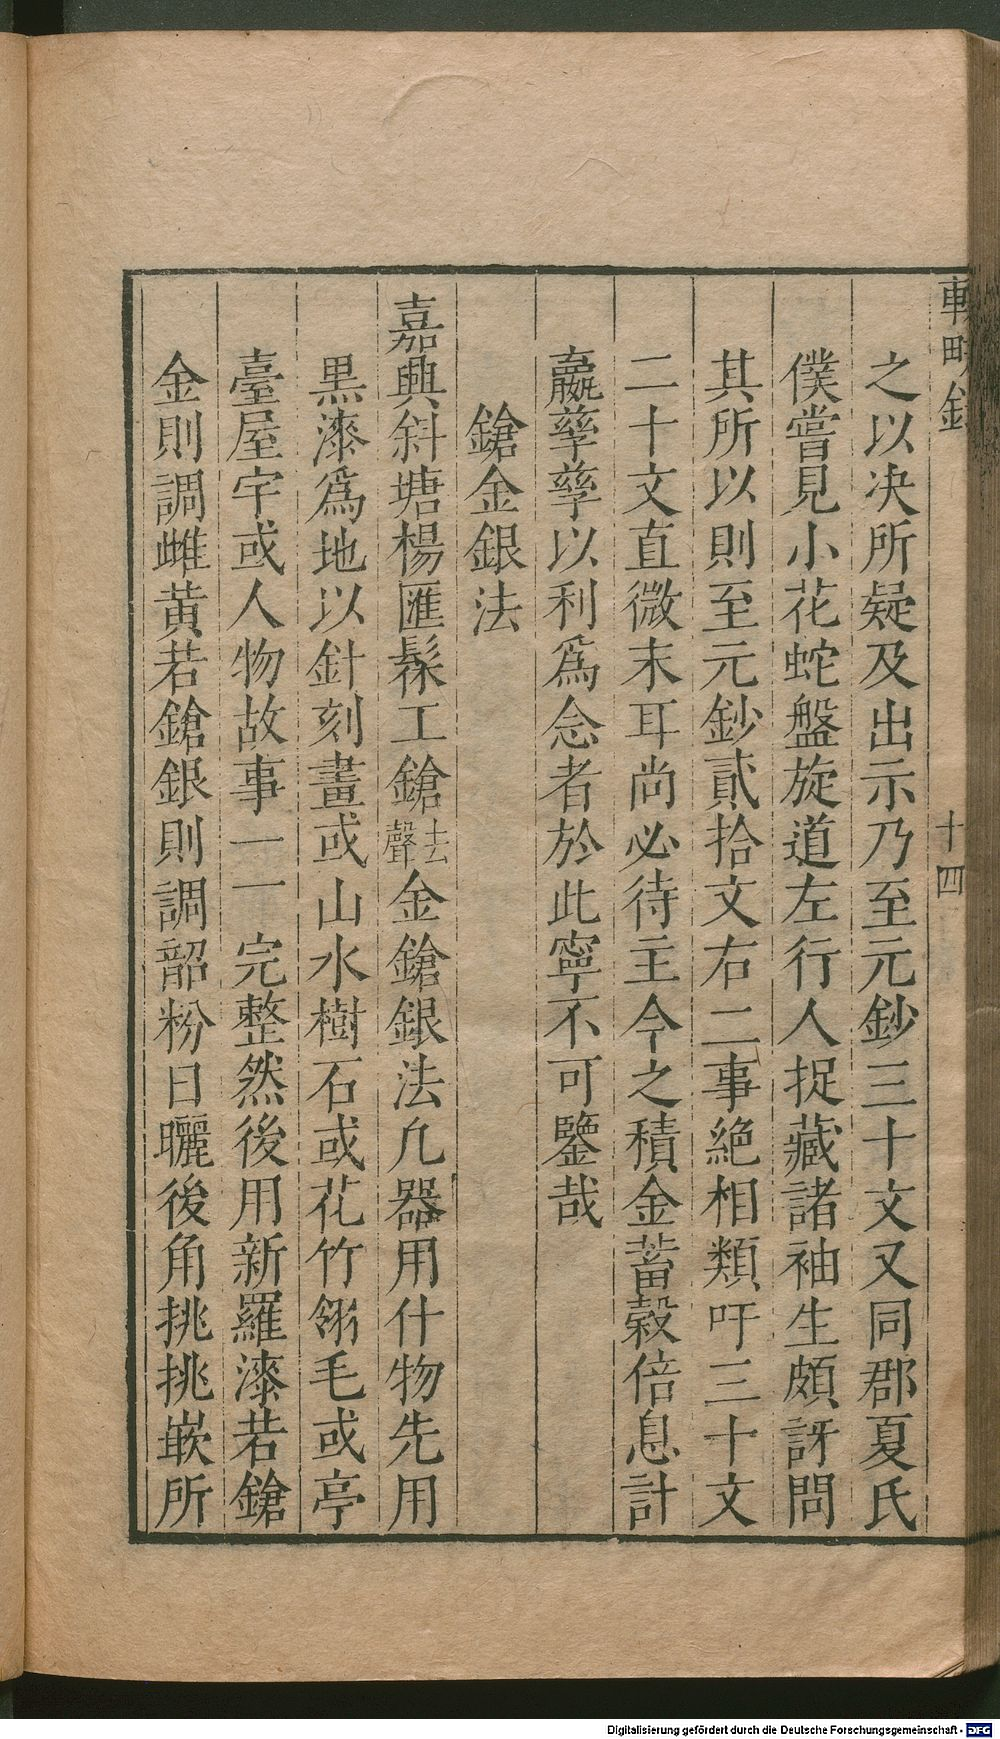 輟畊錄
十四
之以决所疑及出示乃至元鈔三十文又同郡夏氏
僕嘗見小花蛇盤旋道左行人捉藏諸袖生頗訝問
其所以則至元鈔貳拾文右二事絶相類吁三十文
二十文直微末耳尚必待主今之積金蓄穀倍息計
贏孳孳以利爲念者於此寧不可鑒哉
鎗金銀法
嘉興斜塘楊匯髹工鎗去聲金鎗銀法凡器用什物先用
黒漆爲地以針刻畫或山水樹石或花竹翎毛或亭
臺屋宇或人物故事一一完整然後用新羅漆若鎗
金則調雌黄若鎗銀則調韶粉日曬後角挑挑嵌所
Digitalisierung gefördert durch die Deutsche Forschungsgemeinschaft - DFG